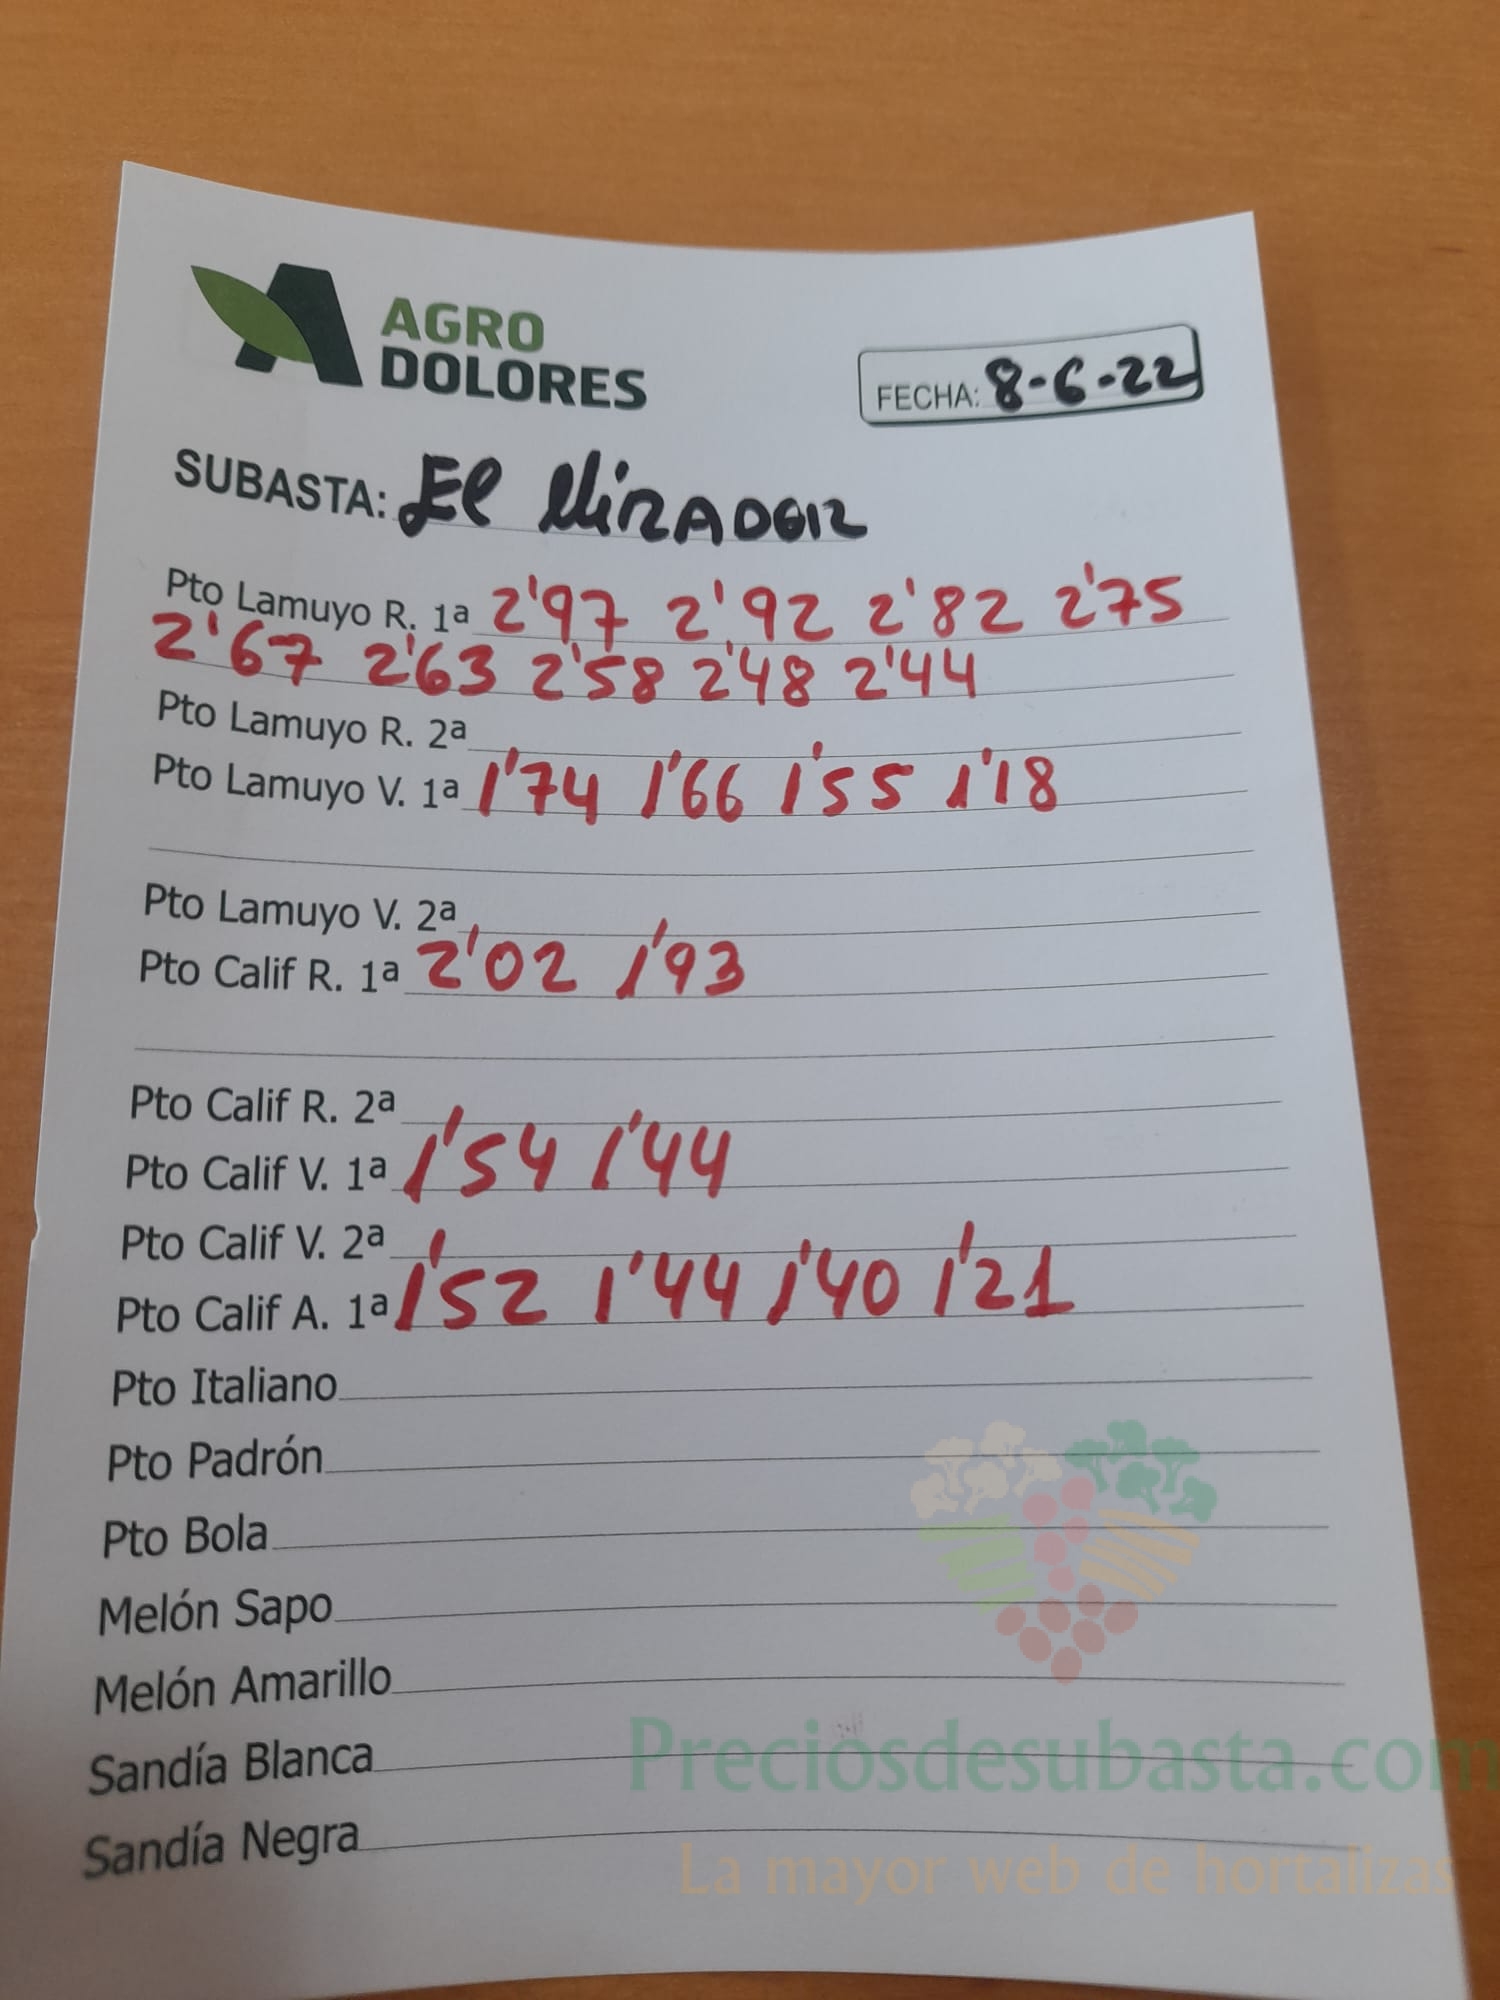 AGRO
DOLORES
FECHA: 8-6-22
SUBASTA: El MiRADOR
Pto Lamuyo R. 1ª 2'97 2'92 2'82 2'75
2'67 2'63 2'58 2'48 2'44
Pto Lamuyo R. 2ª
Pto Lamuyo V. 1ª 1'74 1'66 1'55 1'18
Pto Lamuyo V. 2ª
Pto Calif R. 1ª 2'02 1'93
Pto Calif R. 2ª
Pto Calif V. 1ª 1'54 1'44
Pto Calif V. 2ª
Pto Calif A. 1ª 1'52 1'44 1'40 1'21
Pto Italiano
Pto Padrón
Pto Bola
Melón Sapo
Melón Amarillo
Sandía Blanca
Sandía Negra
Preciosdesubasta.com
La mayor web de hortalizas